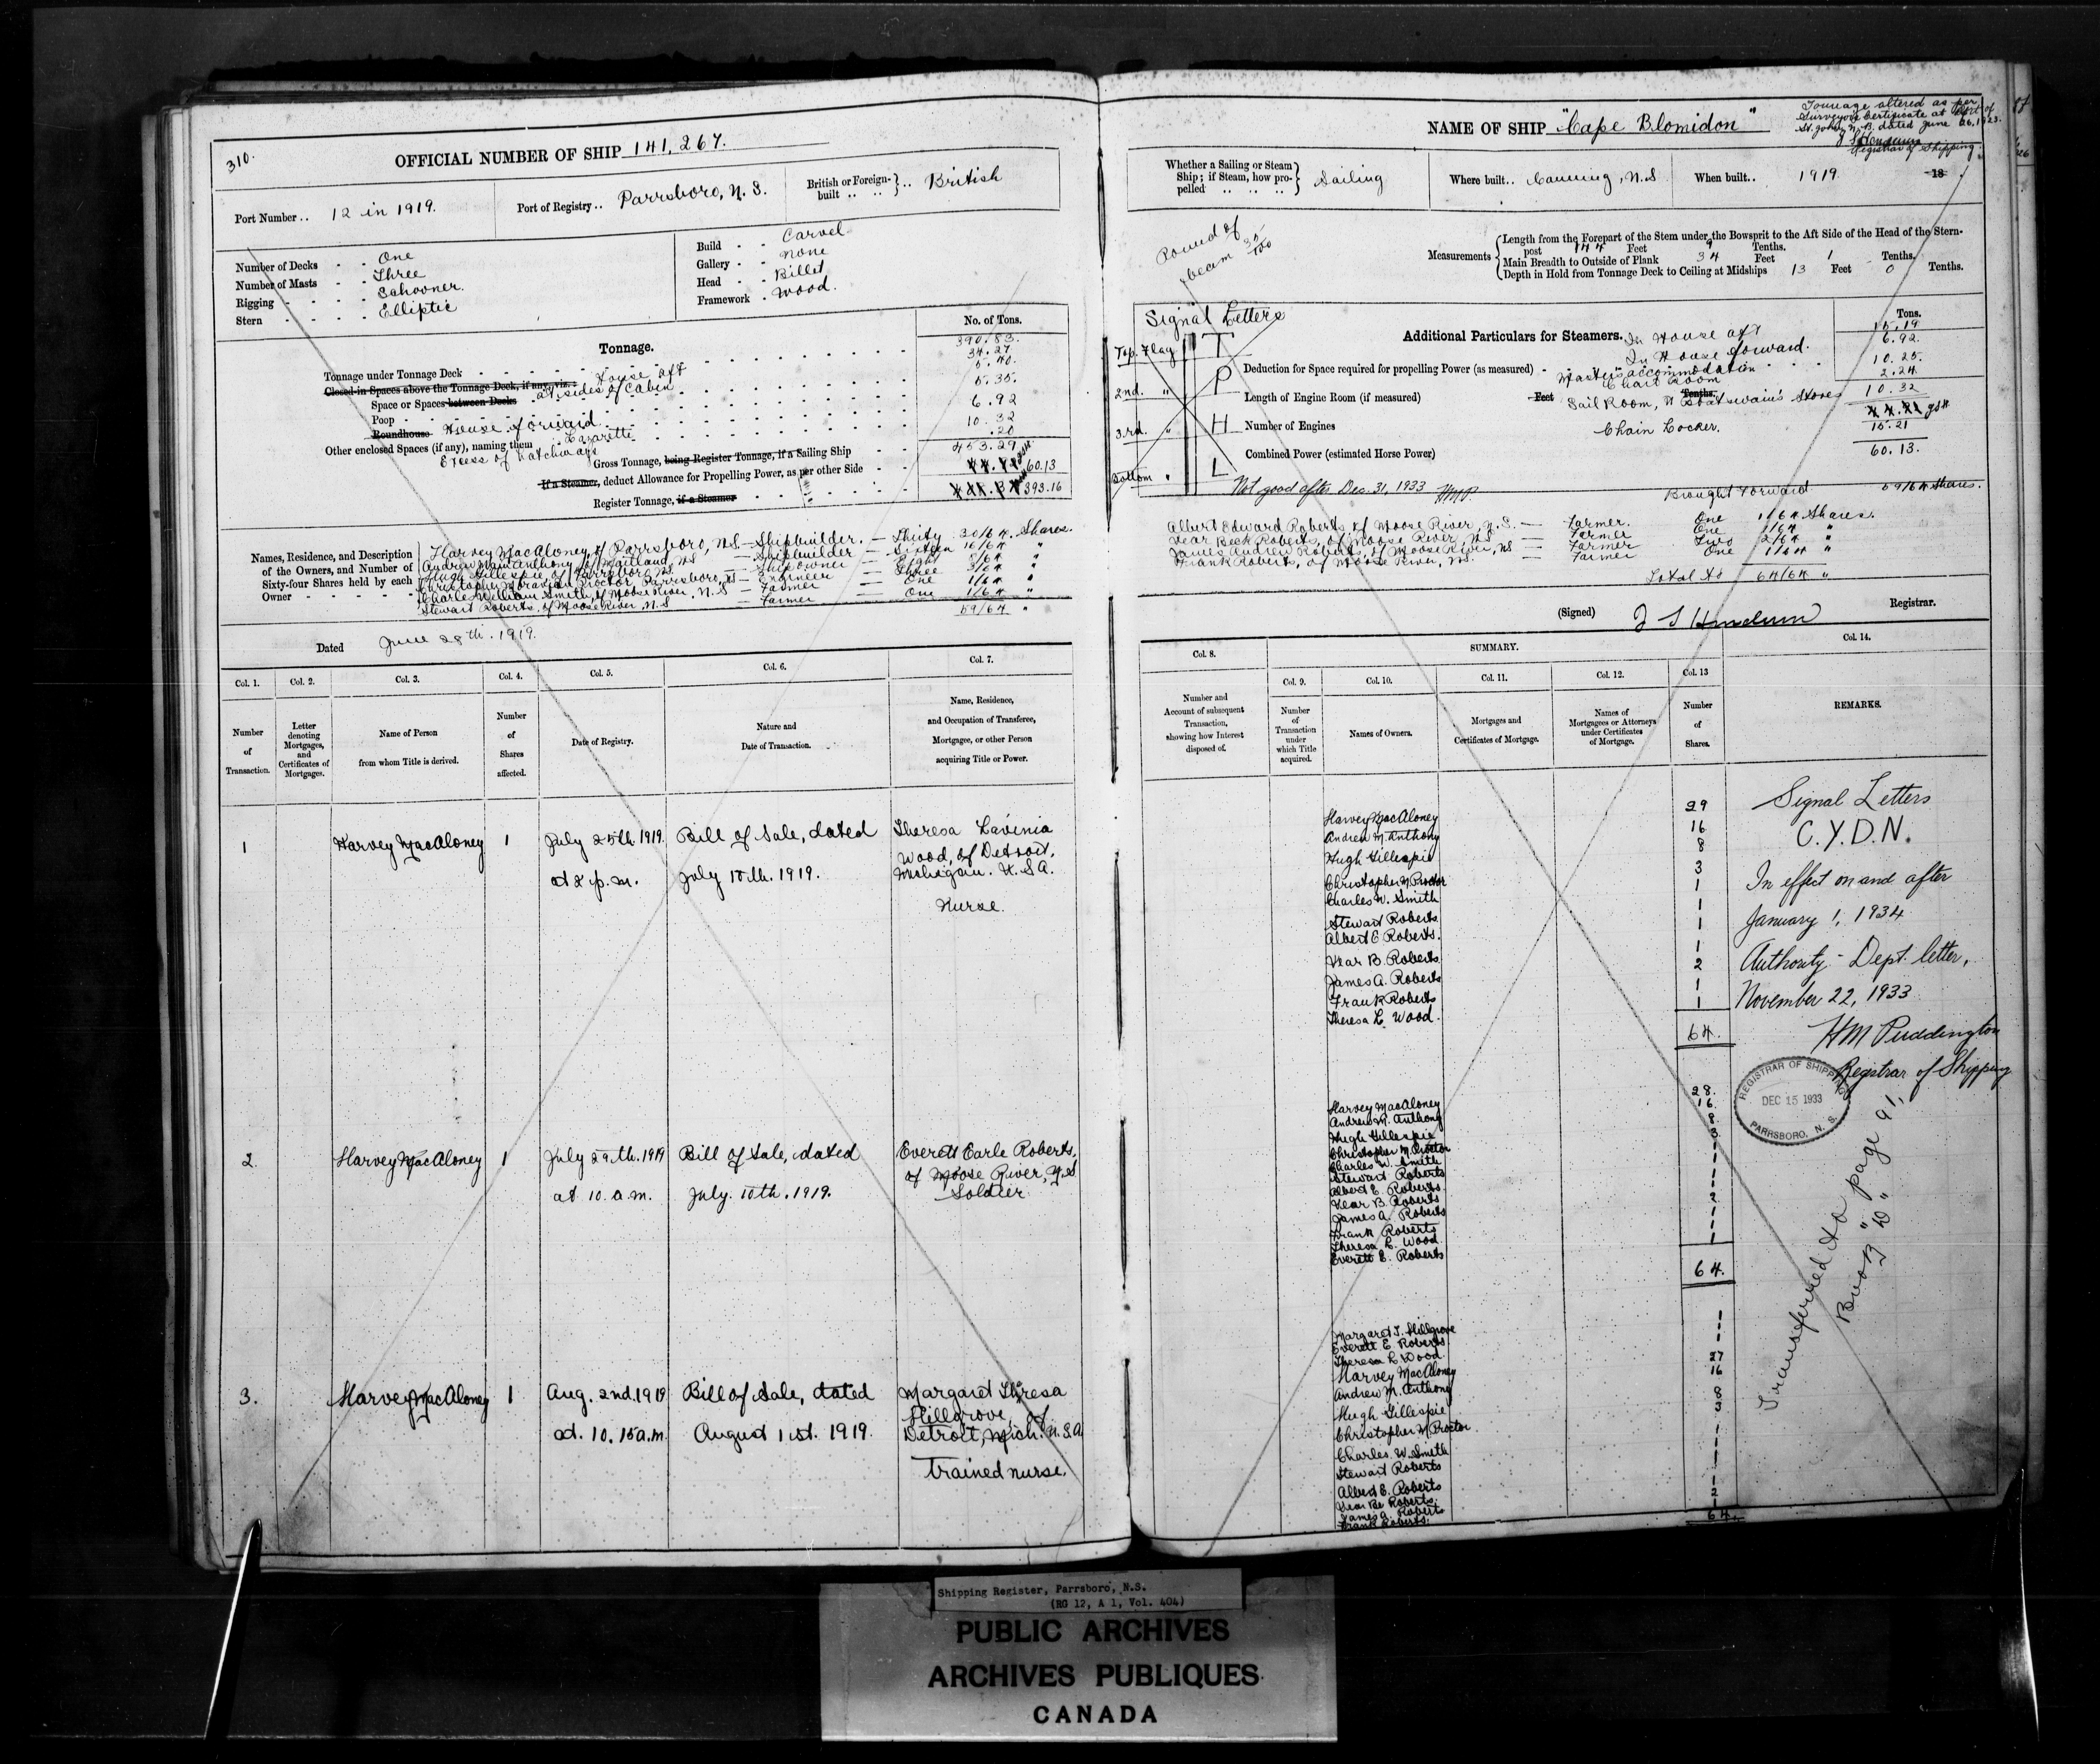 310.
OFFICIAL NUMBER OF SHIP 141,267.
Port Number .. 12 in 1919.
Port of Registry .. Parrsboro, N. S.
British or Foreign-built .. .. British
Number of Decks - - One
Number of Masts - - Three
Rigging - - - - Schooner.
Stern - - - - Elliptic
Build - - Carvel
Gallery - - None
Head - - Billet
Framework - Wood.
Tonnage.
No. of Tons.
Tonnage under Tonnage Deck 390.83.
Closed-in Spaces above the Tonnage Deck, if any, viz.: House aft 34.27
Space or Spaces between Decks at sides of Cabin 5.40.
Poop 5.35.
Roundhouse House forward 6.92
Other enclosed Spaces (if any), naming them Lazarette 10.32
Excess of hatchways .20
Gross Tonnage, being Register Tonnage, if a Sailing Ship 453.29
If a Steamer, deduct Allowance for Propelling Power, as per other Side 60.13
Register Tonnage, if a Steamer 393.16
Names, Residence, and Description of the Owners, and Number of Sixty-four Shares held by each Owner
Harvey MacAloney, of Parrsboro, N.S. — Shipbuilder. — Thirty 30/64 Shares.
Andrew Main Anthony, of Maitland, NS — Shipbuilder — Sixteen 16/64 "
Hugh Gillespie, of Parrsboro NS. — Shipowner — Eight 8/64 "
Christopher Proctor, Parrsboro, NS — Engineer — Three 3/64 "
Charles William Smith, of Moose River, N.S — Farmer — One 1/64 "
Stewart Roberts, of Moose River, N.S — Farmer — One 1/64 "
59/64 "
Dated June 28th. 1919.
Col. 1. Col. 2. Col. 3. Col. 4. Col. 5. Col. 6. Col. 7.
Number of Transaction.
Letter denoting Mortgages, and Certificates of Mortgages.
Name of Person from whom Title is derived.
Number of Shares affected.
Date of Registry.
Nature and Date of Transaction.
Name, Residence, and Occupation of Transferee, Mortgagee, or other Person acquiring Title or Power.
1 Harvey MacAloney 1 July 25th 1919. Bill of Sale, dated Theresa Lavinia
at 2 p.m. July 10th. 1919. Wood, of Detroit,
Michigan. U.S.A.
Nurse.
2. Harvey MacAloney 1 July 29th. 1919 Bill of Sale, dated Everett Earle Roberts,
at 10. a.m. July. 10th. 1919. of Moose River, N.S
Soldier
3. Harvey MacAloney 1 Aug. 2nd. 1919 Bill of Sale, dated Margaret Theresa
at. 10.15 a.m. August 1st. 1919. Hillgrove, of
Detroit, Mich. U.S.A
trained nurse.
NAME OF SHIP "Cape Blomidon"
Tonnage altered as per
Surveyor's Certificate at Port of
St. John, N.B. dated June 26, 1923.
Registrar of Shipping.
Whether a Sailing or Steam Ship; if Steam, how propelled .. .. .. Sailing
Where built .. Canning, N.S
When built .. 1919. 18
Round of
beam 35/100
Measurements
Length from the Forepart of the Stem under the Bowsprit to the Aft Side of the Head of the Stern-
post 144 Feet 9 Tenths.
Main Breadth to Outside of Plank 34 Feet 1 Tenths.
Depth in Hold from Tonnage Deck to Ceiling at Midships 13 Feet 0 Tenths.
Signal Letters
Top. Flag T
2nd. " P
3rd. " H
Bottom " L
Not good after Dec. 31, 1933 HMP.
Additional Particulars for Steamers.
Tons.
In House aft 15.19
In House forward. 6.92
Deduction for Space required for propelling Power (as measured) Master's accommodation 10.25
Chart Room 2.24
Length of Engine Room (if measured) Feet Tenths. Sail Room, & Boatswain's Stores 10.32
Number of Engines Chain Locker. 15.21
Combined Power (estimated Horse Power) 60.13
Brought Forward 59/64 Shares.
Albert Edward Roberts of Moose River, N.S. — Farmer. One 1/64 Shares.
Vear Beek Roberts, of Moose River, NS — Farmer One 1/64 "
James Andrew Roberts, of Moose River, NS — Farmer Two 2/64 "
Frank Roberts, of Moose River, NS. — Farmer One 1/64 "
Total to 64/64 "
(Signed) Registrar.
Col. 8. SUMMARY. Col. 14.
Col. 9. Col. 10. Col. 11. Col. 12. Col. 13
Number and Account of subsequent Transaction, showing how Interest disposed of.
Number of Transaction under which Title acquired.
Names of Owners.
Mortgages and Certificates of Mortgage.
Names of Mortgagees or Attorneys under Certificates of Mortgage.
Number of Shares.
REMARKS.
Harvey MacAloney 29
Andrew M. Anthony 16
Hugh Gillespie 8
Christopher M Proctor 3
Charles W. Smith 1
Stewart Roberts 1
Albert E Roberts. 1
Vear B. Roberts 1
James A. Roberts 2
Frank Roberts 1
Theresa L. Wood. 1
64.
Harvey MacAloney 28.
Andrew M. Anthony 16.
Hugh Gillespie 8
Christopher M. Proctor 3
Charles W. Smith 1
Stewart Roberts 1
Albert E. Roberts. 1
Vear B. Roberts 1
James A. Roberts 2
Frank Roberts 1
Theresa L. Wood. 1
Everett E. Roberts 1
64.
Margaret T. Hillgrove 1
Everett E. Roberts 1
Theresa L Wood 1
Harvey MacAloney 27
Andrew M. Anthony 16
Hugh Gillespie 8
Christopher M Proctor 3
Charles. W. Smith 1
Stewart Roberts 1
Albert E. Roberts 1
Vear Be Roberts. 1
James A. Roberts 2
Frank Roberts. 1
64.
Signal Letters
C.Y.D.N.
In effect on and after
January 1, 1934
Authority - Dept. letter,
November 22, 1933
HM Puddington
Registrar of Shipping
REGISTRAR OF SHIPPING
DEC 15 1933
PARRSBORO, N. S.
Transferred to page 91,
Book "D"
Shipping Register, Parrsboro, N.S.
(RG 12, A 1, Vol. 404)
PUBLIC ARCHIVES
ARCHIVES PUBLIQUES
CANADA